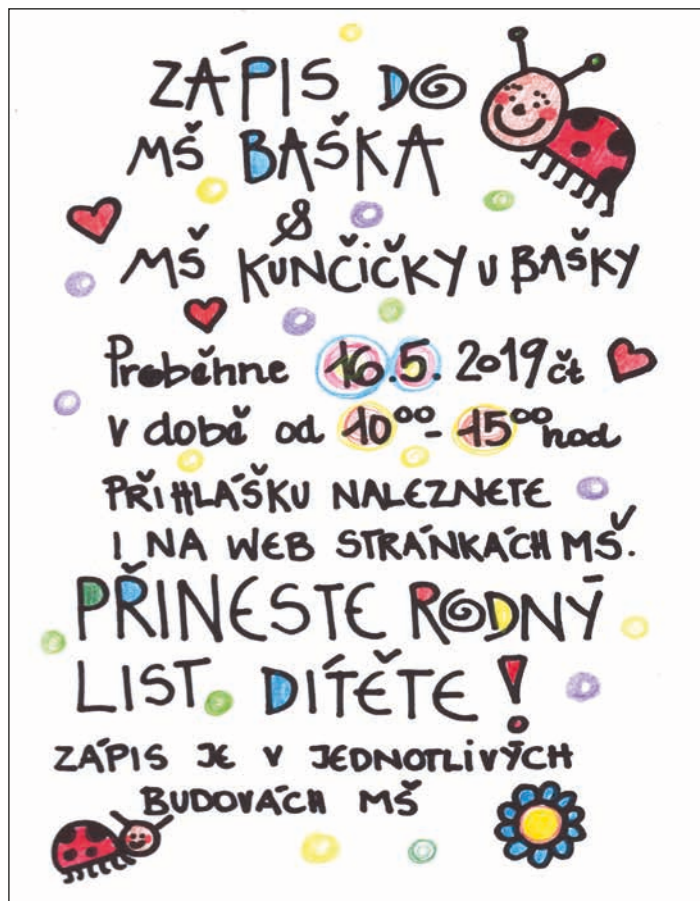 ZÁPIS DO
MŠ BAŠKA
&
MŠ KUNČIČKY U BAŠKY
Proběhne 16.5. 2019 čt
v době od 10⁰⁰- 15⁰⁰ hod
PŘIHLÁŠKU NALEZNETE
I NA WEB STRÁNKÁCH MŠ.
PŘINESTE RODNÝ
LIST DÍTĚTE!
ZÁPIS JE V JEDNOTLIVÝCH
BUDOVÁCH MŠ